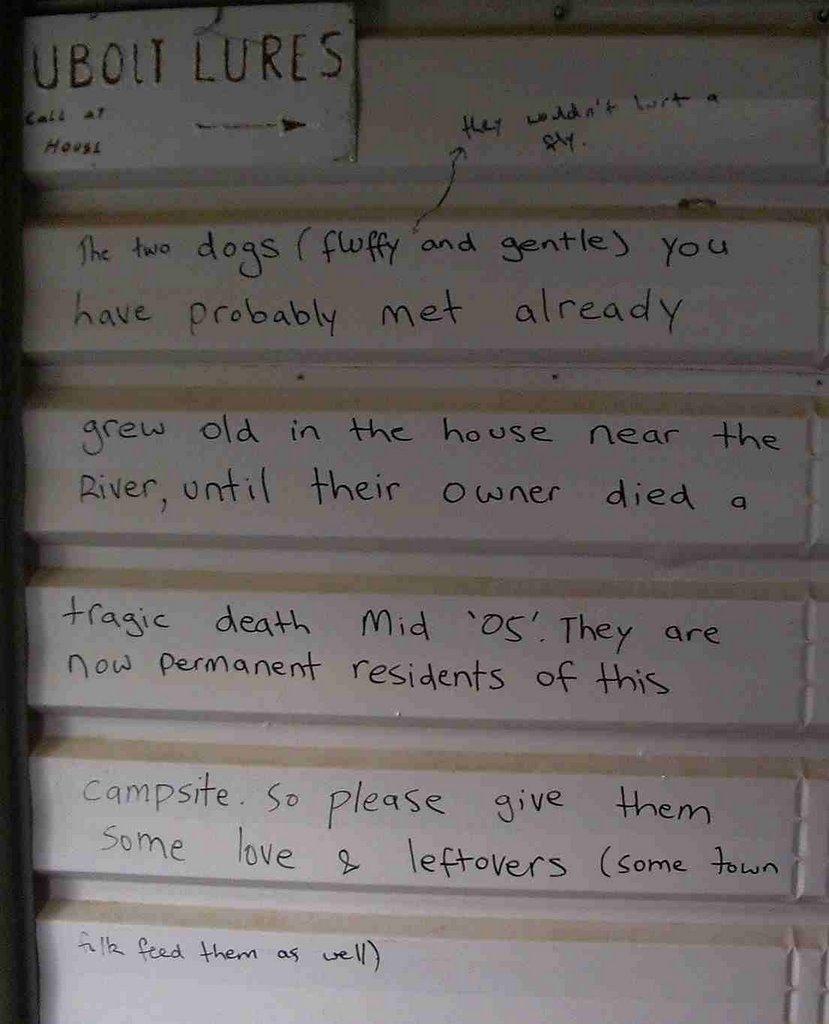 UBOLT LURES
Call at
House
they wouldn't hurt a
fly.
The two dogs (fluffy and gentle) you
have probably met already
grew old in the house near the
River, until their owner died a
tragic death Mid '05'. They are
now permanent residents of this
campsite. So please give them
some love & leftovers (some town
folk feed them as well)